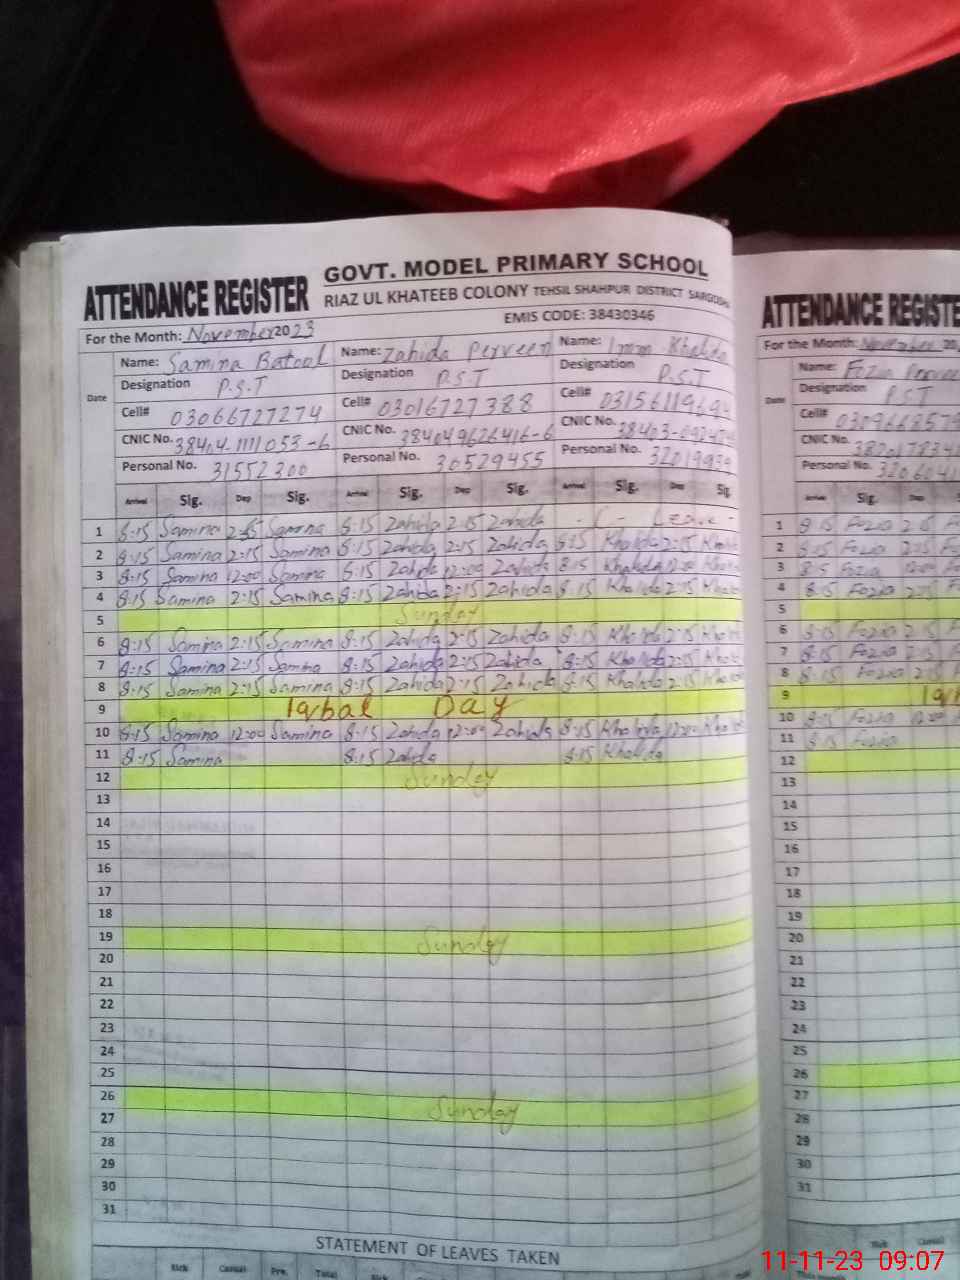 GOVT. MODEL PRIMARY SCHOOL
ATTENDANCE REGISTER RIAZ UL KHATEEB COLONY TEHSIL SHAHPUR DISTRICT
For the Month: November 2023 EMIS CODE: 38430346
Name: Samina Batool Name: Zahida Perveen Name:
Date Designation P.S.T Designation P.S.T Designation P.S.T
Cell# 03066727274 Cell# 03016727388 Cell#
CNIC No. 38404-1111053-6 CNIC No. 384049626416-6 CNIC No.
Personal No. 31552300 Personal No. 30529455 Personal No.
Arrival Sig. Dep Sig. Arrival Sig. Dep Sig. Arrival Sig. Dep Sig
1 8:15 Samina 2:15 Samina 8:15 Zahida 2:15 Zahida Leave
2 8:15 Samina 2:15 Samina 8:15 Zahida 2:15 Zahida 8:15 Khalida 2:15
3 8:15 Samina 12:00 Samina 8:15 Zahida 12:00 Zahida 8:15 Khalida 12:00
4 8:15 Samina 2:15 Samina 8:15 Zahida 2:15 Zahida 8:15 Khalida 2:15
5 Sunday
6 8:15 Samina 2:15 Samina 8:15 Zahida 2:15 Zahida 8:15 Khalida 2:15
7 8:15 Samina 2:15 Samina 8:15 Zahida 2:15 Zahida 8:15 Khalida 2:15
8 8:15 Samina 2:15 Samina 8:15 Zahida 2:15 Zahida 8:15 Khalida 2:15
9 Iqbal Day
10 8:15 Samina 12:00 Samina 8:15 Zahida 12:00 Zahida 8:15 Khalida 12:00
11 8:15 Samina 8:15 Zahida 8:15 Khalida
12 Sunday
13
14
15
16
17
18
19 Sunday
20
21
22
23
24
25
26 Sunday
27
28
29
30
31
STATEMENT OF LEAVES TAKEN
Sick Casual Prv. Total Sick Casual
ATTENDANCE
For the Month: November 20
Name: Fozia
Date Designation PST
Cell#
CNIC No.
Personal No.
Arrival Sig. Dep
1 8:15 Fozia 2:15
2 8:15 Fozia 2:15
3 8:15 Fozia 12:00
4 8:15 Fozia 2:15
5
6 8:15 Fozia 2:15
7 8:15 Fozia 2:15
8 8:15 Fozia 2:15
9
10 8:15 Fozia 12:00
11 8:15 Fozia
12
13
14
15
16
17
18
19
20
21
22
23
24
25
26
27
28
29
30
31
Sick Casual
11-11-23 09:07